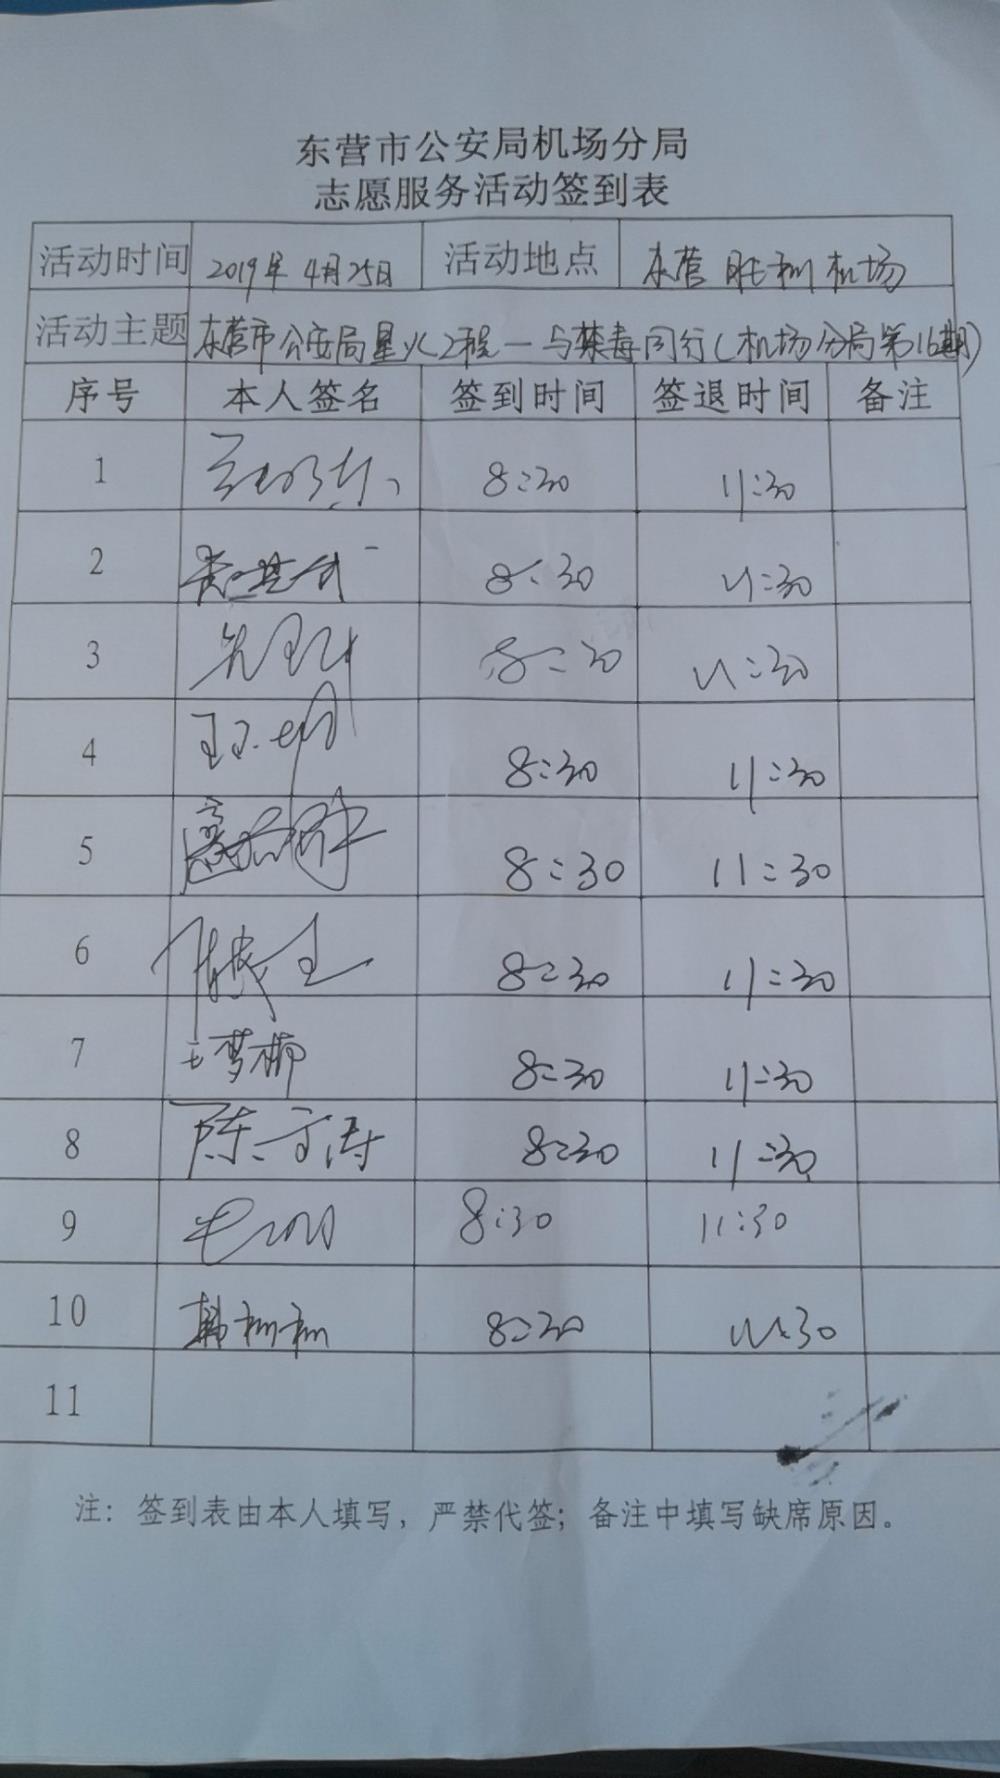 东营市公安局机场分局
志愿服务活动签到表
活动时间 2019年4月25日 活动地点 东营胜利机场
活动主题 东营市公安局星火工程—与禁毒同行(机场分局第16期)
序号 本人签名 签到时间 签退时间 备注
1 8:30 11:30
2 8:30 11:30
3 8:30 11:30
4 8:30 11:30
5 8:30 11:30
6 8:30 11:30
7 王梦柳 8:30 11:30
8 陈方涛 8:30 11:30
9 8:30 11:30
10 韩利利 8:30 11:30
11
注：签到表由本人填写，严禁代签；备注中填写缺席原因。